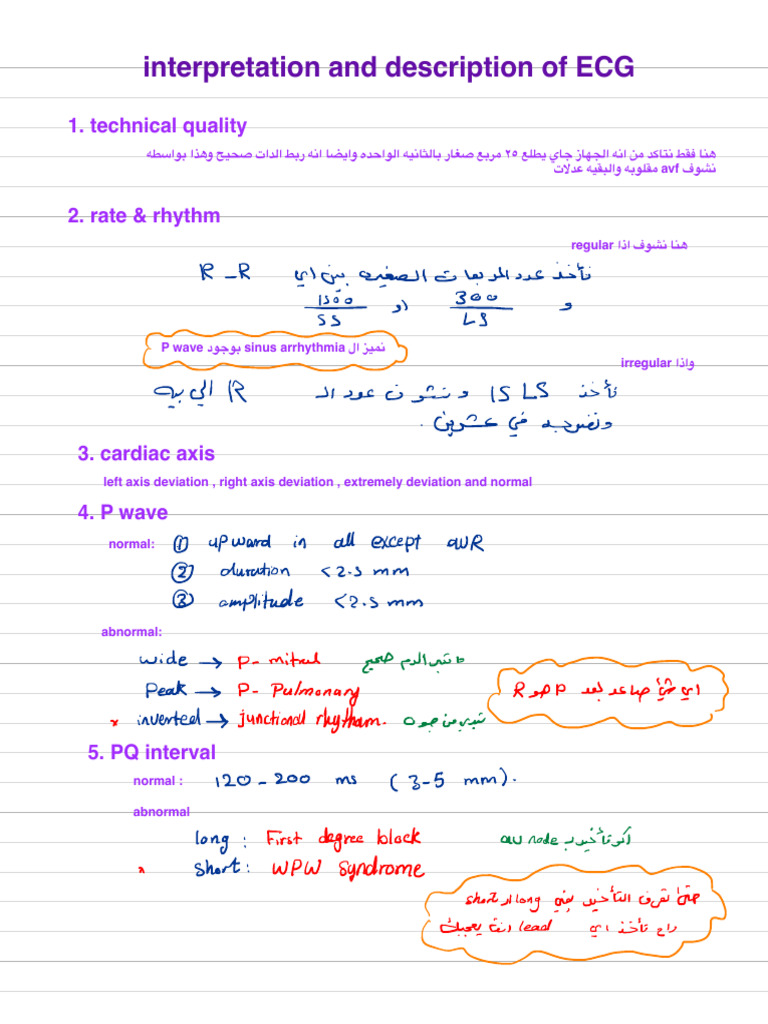 interpretation and description of ECG
1. technical quality
هنا فقط نتاكد من انه الجهاز جاي يطلع ٢٥ مربع صغار بالثانيه الواحده وايضا انه ربط الدات صحيح وهذا بواسطه
نشوف avf مقلوبه والبقيه عدلات
2. rate & rhythm
هنا نشوف اذا regular
نأخذ عدد المربعات الصغيره بين اي R-R
و 300/LS او 1500/SS
نميز ال sinus arrhythmia بوجود P wave
واذا irregular
نأخذ 15 LS و نشوف عدد الـ R الي بيه
ونضربه في عشرين.
3. cardiac axis
left axis deviation , right axis deviation , extremely deviation and normal
4. P wave
normal: ① upward in all except aVR
② duration <2.5 mm
③ amplitude <2.5 mm
abnormal:
wide → P-mitral صحيح
Peak → P-Pulmonary
اي شي صاعد بعد P هو R
x inverted → junctional rhytham. تبدي من
5. PQ interval
normal : 120-200 ms (3-5 mm).
abnormal
long: First degree block اكو تأخير ب av node
x short: WPW syndrome
حتى نعرف التأخير يعني long او short
راح نأخذ اي lead انت يعجبك